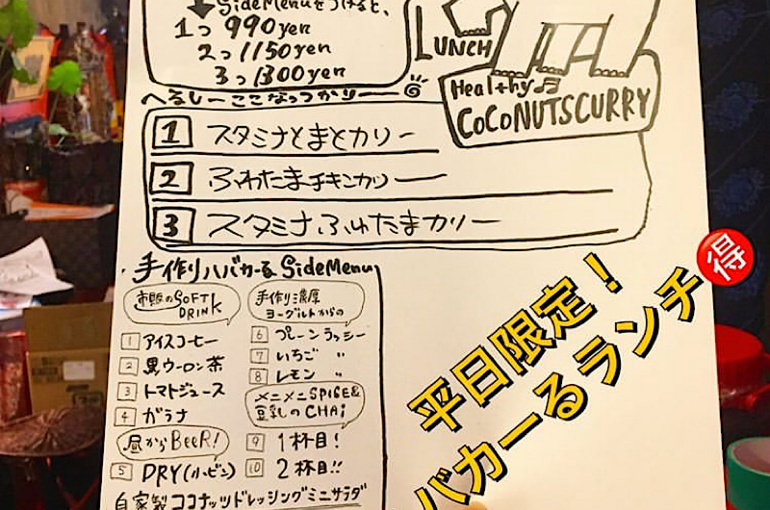 SideMenuをつけると、
1つ 990yen
2つ 1150yen
3つ 1300yen
LUNCH
Healthy♫
COCONUTSCURRY
へるしーここなっつかりー
1 スタミナとまとカリー
2 ふわたまチキンカリー
3 スタミナふわたまカリー
手作りハバカーるSideMenu
市販のSOFT DRINK
1 アイスコーヒー
2 黒ウーロン茶
3 トマトジュース
4 ガラナ
昼からBeeR!
5 DRY(小ビン)
手作り濃厚
ヨーグルトからの
6 プレーンラッシー
7 いちご 〃
8 レモン 〃
メニメニSPICE&
豆乳のCHAi
9 1杯目!
10 2杯目!!
自家製ココナッツドレッシングミニサラダ
平日限定!
バカーるランチ
得